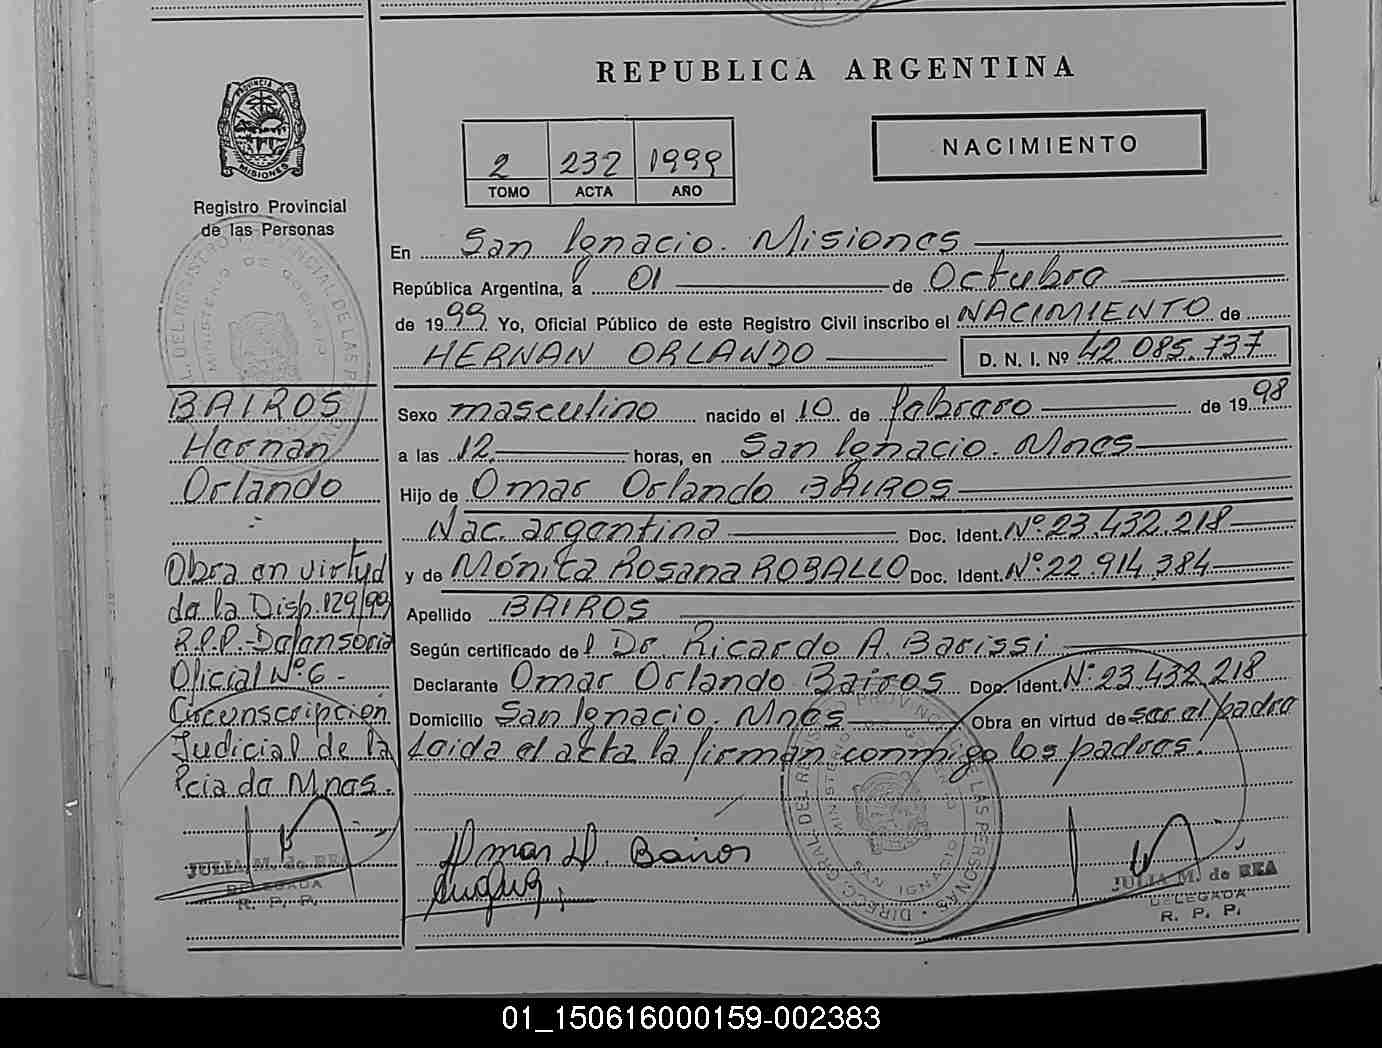 PROVINCIA DE
MISIONES
Registro Provincial
de las Personas
REPUBLICA ARGENTINA
2 232 1999
TOMO ACTA AÑO
NACIMIENTO
En San Ignacio. Misiones
República Argentina, a 01 de Octubre
de 1999 Yo, Oficial Público de este Registro Civil inscribo el NACIMIENTO de
HERNAN ORLANDO D. N. I. Nº 42.085.737
Sexo masculino nacido el 10 de febrero de 1998
a las 12 horas, en San Ignacio. Mnes
Hijo de Omar Orlando BAIROS
Nac. argentina Doc. Ident. Nº 23.432.218
y de Mónica Rosana ROBALLO Doc. Ident. Nº 22.914.384
Apellido BAIROS
Según certificado del Dr. Ricardo A. Barissi
Declarante Omar Orlando Bairos Doc. Ident. Nº 23.432.218
Domicilio San Ignacio. Mnes Obra en virtud de ser el padre
Leida el acta la firman conmigo los padres.
BAIROS
Hernan
Orlando
Obra en virtud
de la Disp. 129/99
R.P.P.-Defensoria
Oficial Nº 6 -
Circunscripcion
Judicial de la
Pcia de Mnes.
JULIA M. de REA
DELEGADA
R. P. P.
Bairos
JULIA M. de REA
DELEGADA
R. P. P.
01_150616000159-002383